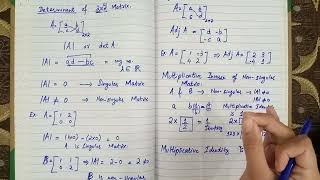 Determinant of 2x2 Matrix:
A = [a b
c d]
|A| or det A
|A| = ad - bc =
|A| = 0 → Singular Matrix
|A| ≠ 0 → Non-singular Matrix
Ex. A = [1 2
0 0]
|A| = (1x0) - (2x0) = 0
A is Singular Matrix.
B = [1 1
|B| = 2-0 = 2 ≠ 0
B is non-singular
A = [a b
c d]
Adj A = [d -b
-c a]
Ex. A = [1 -3
4 2] ⇒ Adj A = [2 3
-4 1]
Multiplicative Inverse of Non-Singular Matrix:
A & B → Non-Singular → |A| ≠ 0
|B| ≠ 0
Multiplicative Identity
is 1
2 x 1/2 = 1
Identity
Multiplicative Identity